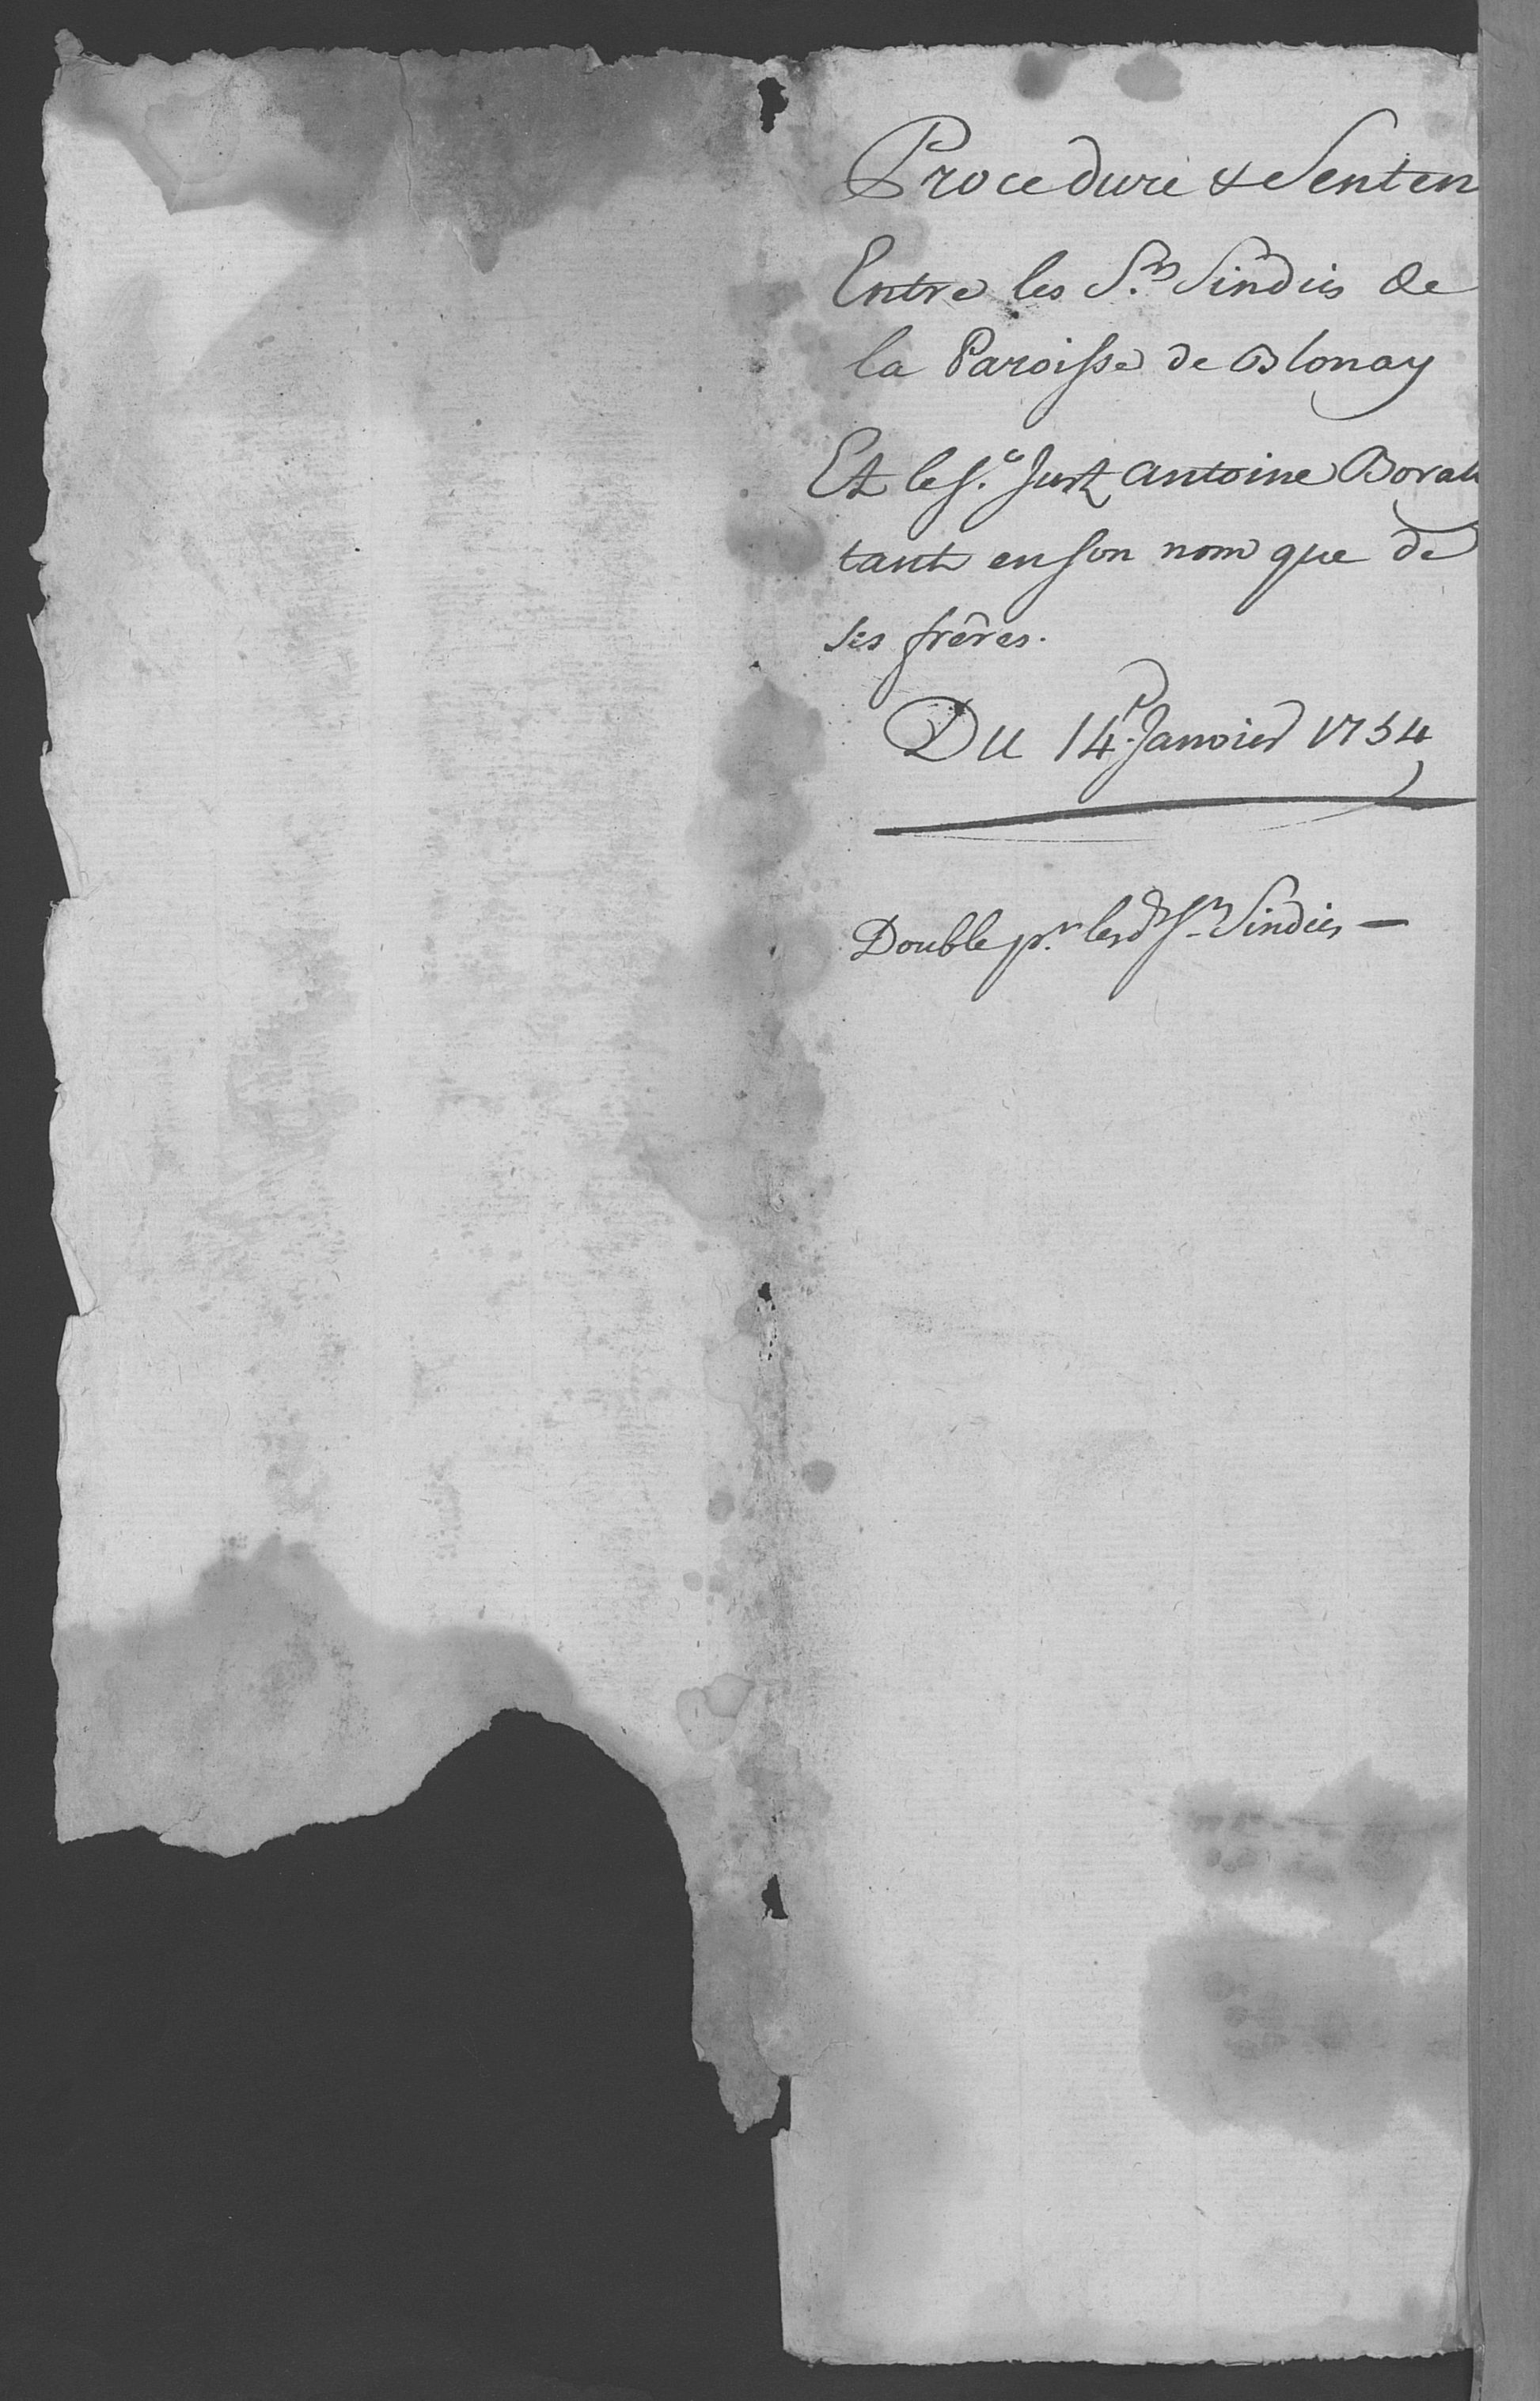 Procedure & Senten
Entre les S.rs Sindics de
la Paroisse de Blonay
Et le S.r Just Antoine Borat
tant en son nom que de
ses frères.
Du 14.e Janvier 1754
Double p.r lesd. S.rs Sindics —